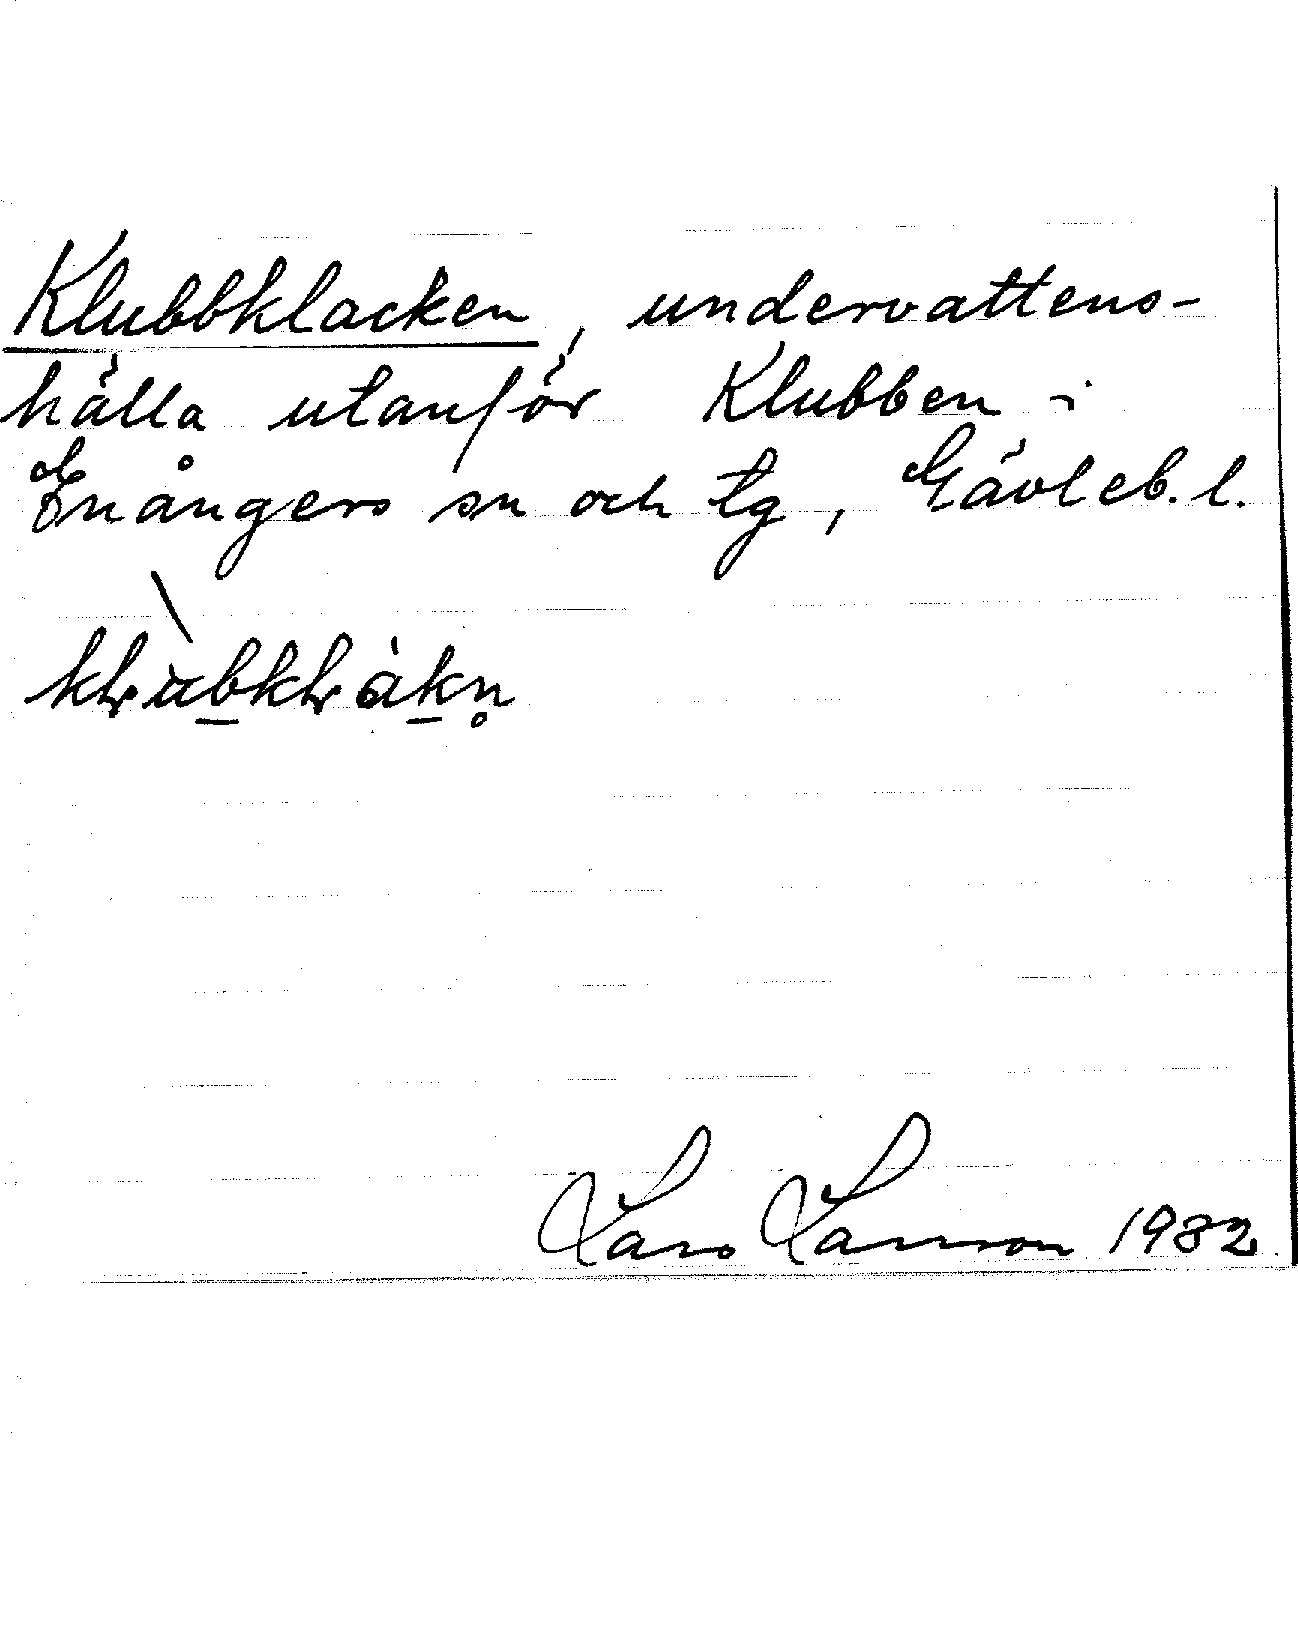 Klubbklacken, undervattens-
hälla utanför Klubben i
Enångers sn och tg, Gävleb. l.
Lars Larsson 1982